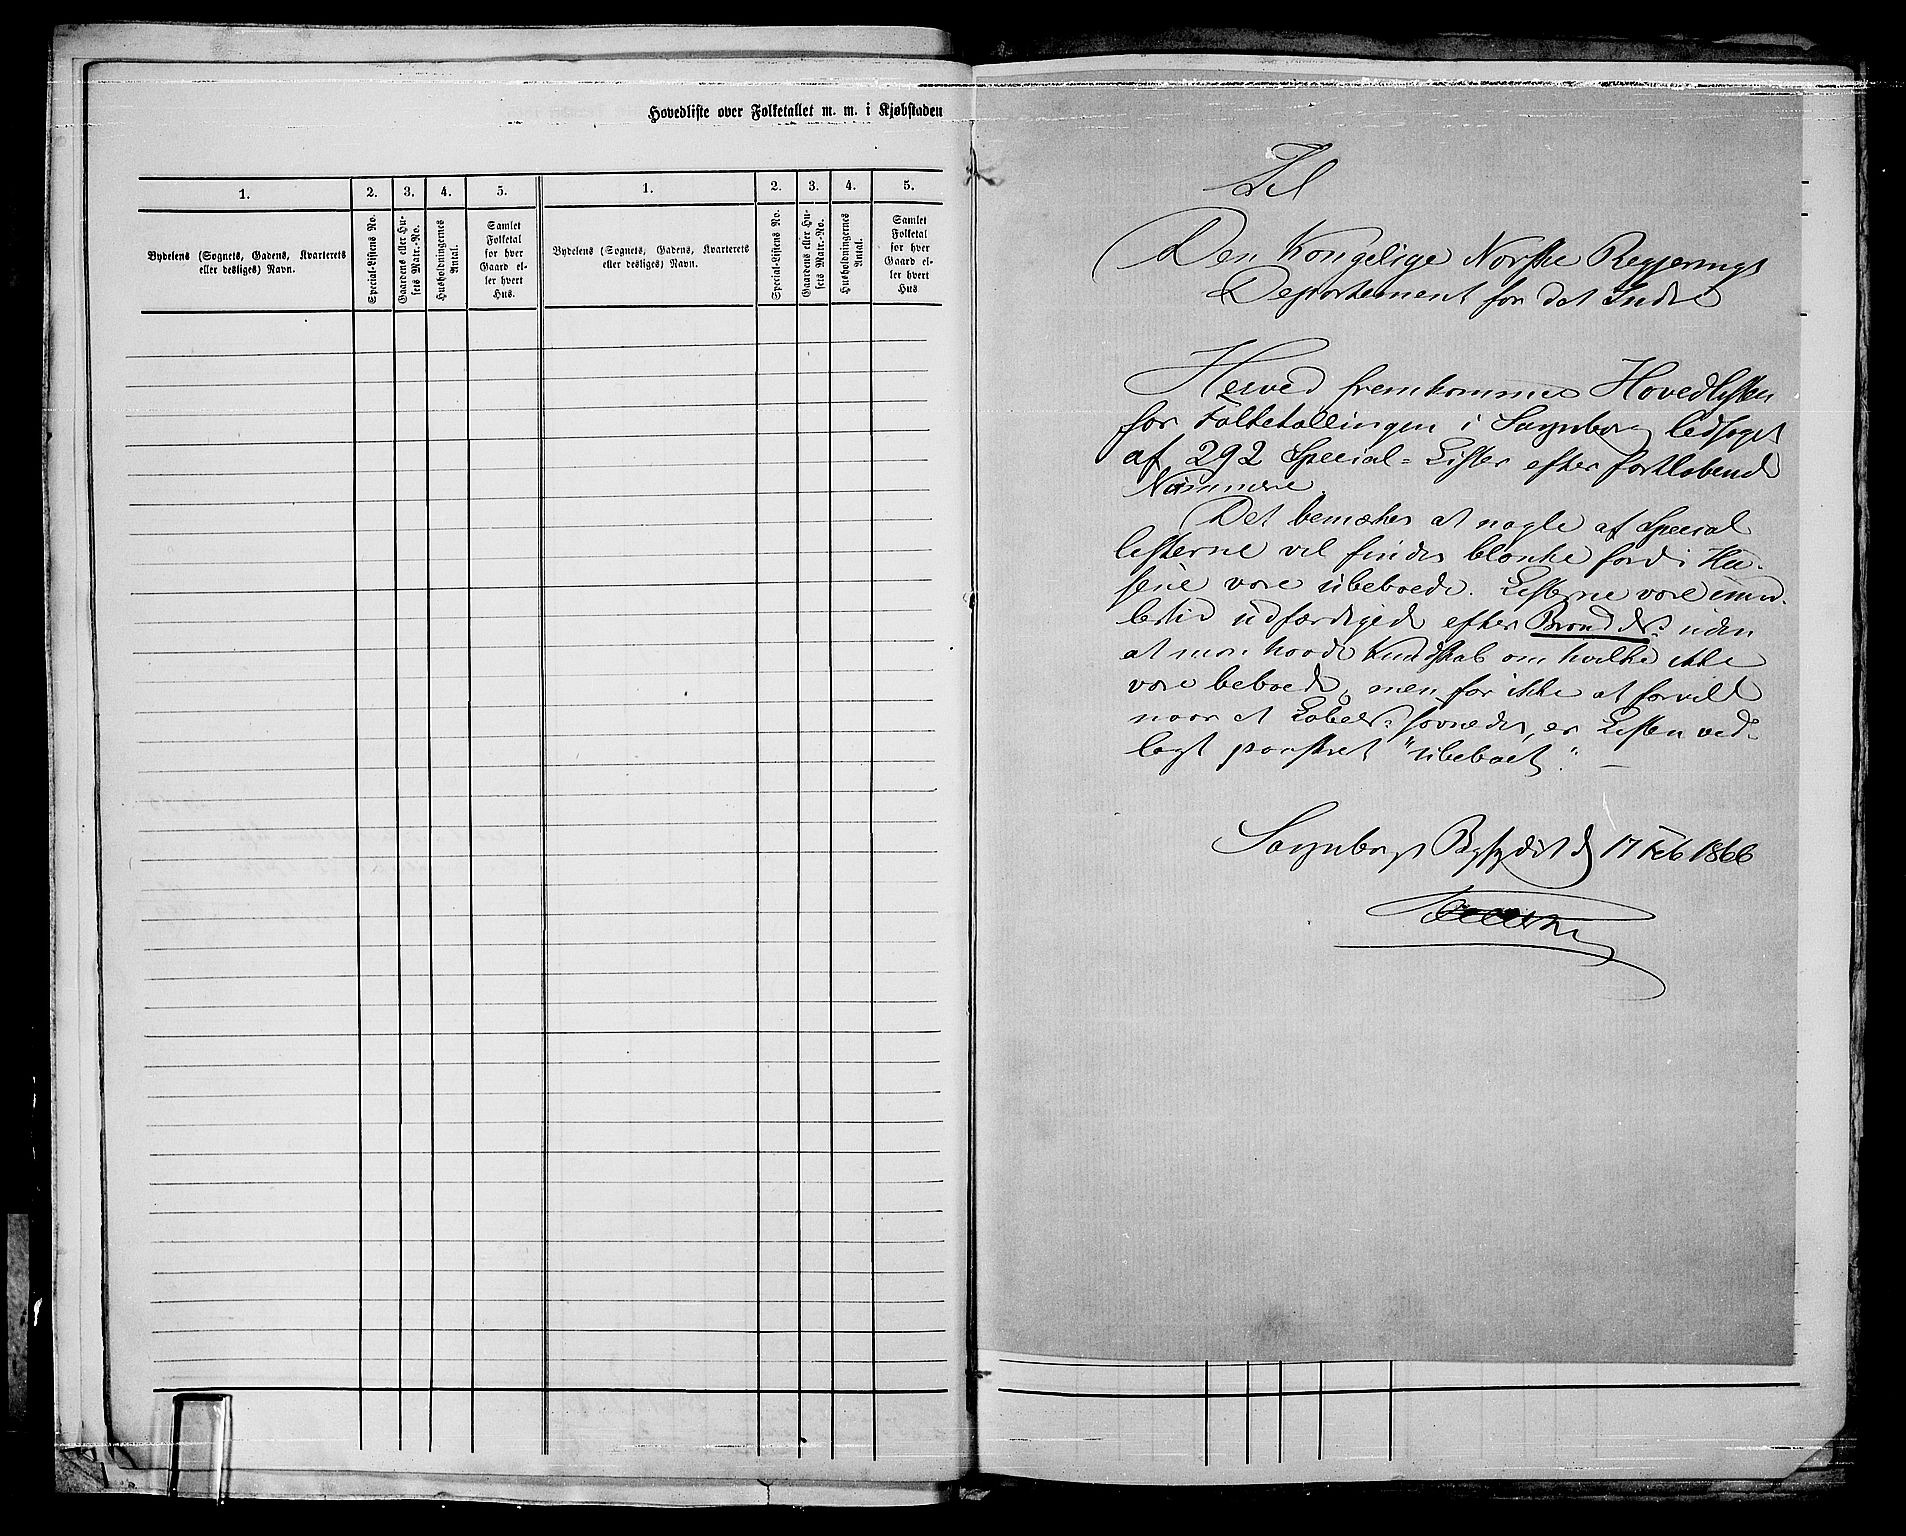 Hovedliste over Folketallet m. m. i Kjøbstaden
1. 2. 3. 4. 5. 1. 2. 3. 4. 5.
Bydelens (Sognets, Gadens, Kvarterets
eller desliges) Navn.
Special-Listens No.
Gaardens eller Hu-
sets Matr.-No.
Husholdningernes
Antal.
Samlet
Folketal
for hver
Gaard el-
ler hvert
Hus.
Bydelens (Sognets, Gadens, Kvarterets
eller desliges) Navn.
Special-Listens No.
Gaardens eller Hu-
sets Matr.-No.
Husholdningernes
Antal.
Samlet
Folketal
for hver
Gaard el-
ler hvert
Hus.
Til
Den Kongelige Norske Regjerings
Departement for det Indre
Herved fremkommer Hovedlisten
for Folketællingen i Sarpsborg ledsaget
af 292 Special-Lister efter fortløbende
Nummere.
Det bemærkes at nogle af Special
listerne vil findes blanke fordi Hu-
sene vare ubeboede. Listerne vare imid-
lertid udfærdigede efter uden
at man havde Kundskab om hvilke ikke
vare beboede, men for ikke at forvilde
naar at savnedes, er Listen ved-
lagt paaskrevet "ubeboet". —
Sarpsborgs Byfogdet d 17 Feb 1866